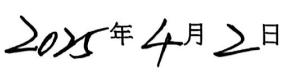 2025年4月2日